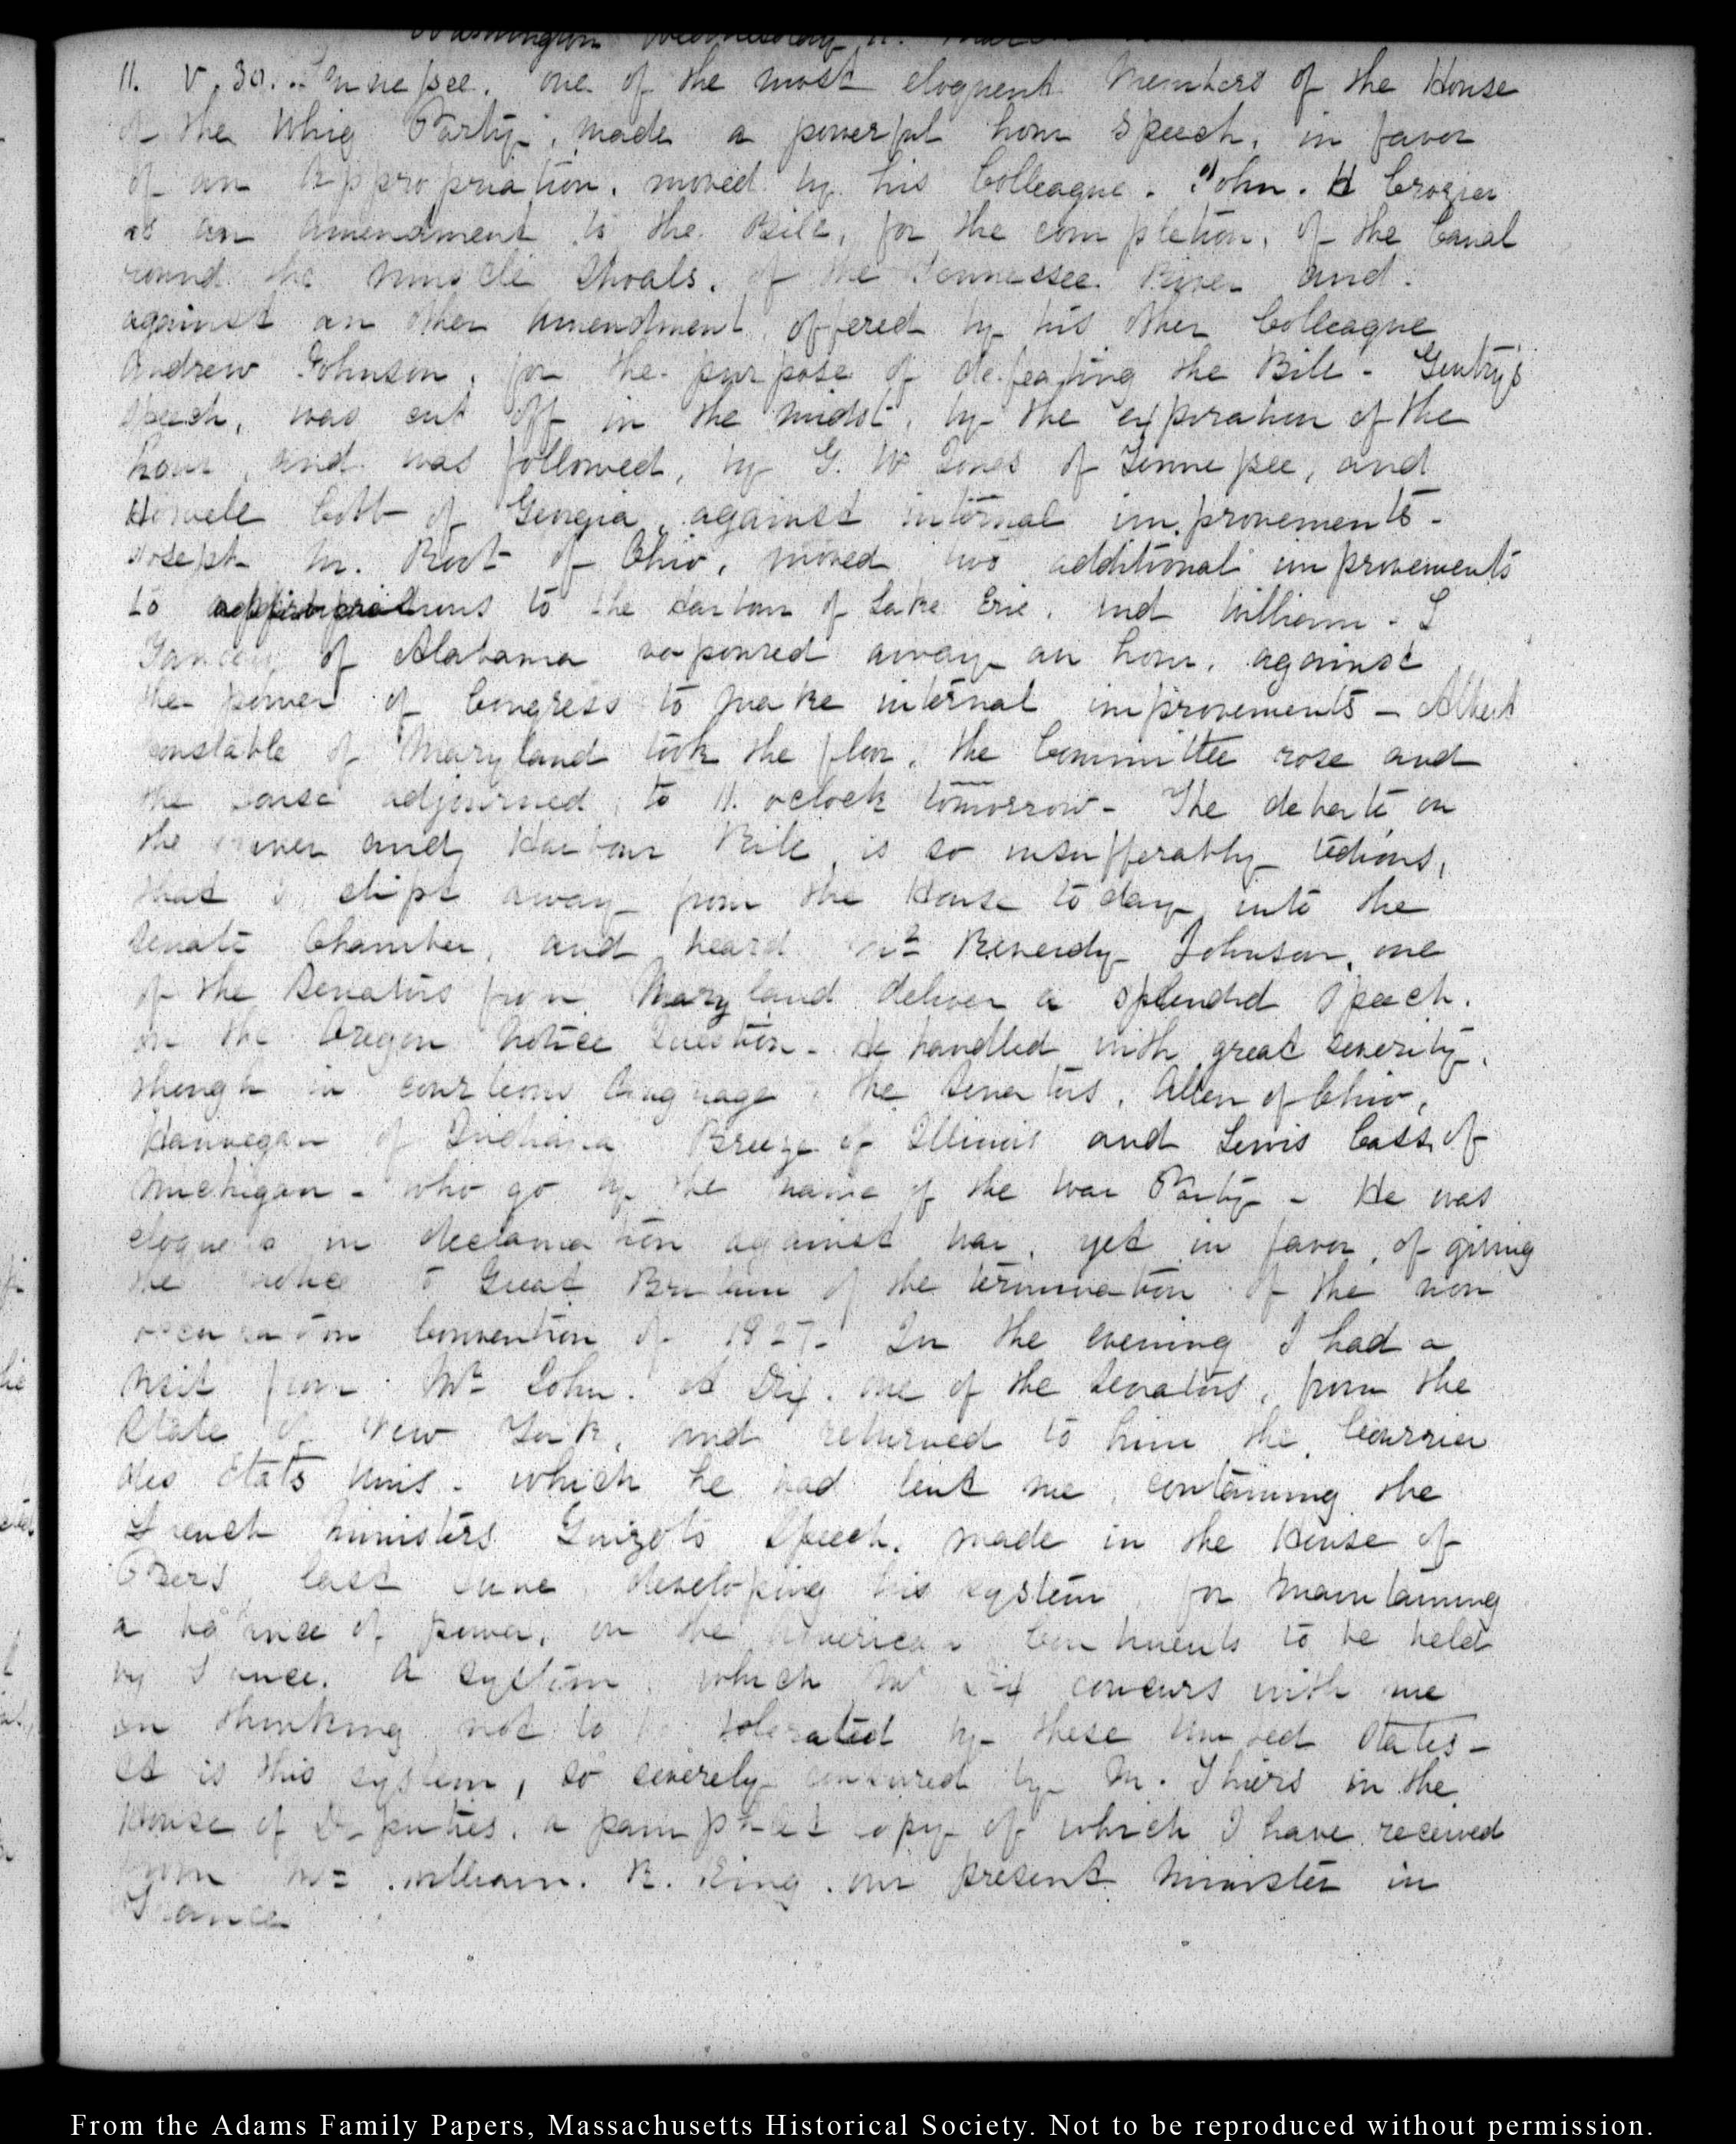 Washington Wednesday 11. March
11. V. 30. Tennessee, one of the most eloquent Members of the House
of the Whig Party, made a powerful hour speech, in favor
of an Appropriation, moved by his Colleague. John. H Crozier
as an amendment to the Bill, for the completion, of the Canal
round the muscle Shoals, of the Tennessee River and
against an other amendment, offered by his other Colleague
Andrew Johnson, for the purpose of defeating the Bill - Gentry's
speech, was cut off in the midst, by the expiration of the
hour, and was followed, by G. W Jones of Tennessee, and
Howell Cobb of Georgia, against internal improvements -
Joseph M. Root of Ohio, moved two additional improvements
to appropriations to the Harbour of Lake Erie, and William - L
Yancey of Alabama vapoured away an hour, against
the power of Congress to make internal improvements - Albert
Constable of Maryland took the floor, the Committee rose and
the House adjourned, to 11. oclock tomorrow - The debate, on
the River and Harbour Bill, is so insufferably tedious,
that I slipt away from the House to day, into the
Senate Chamber, and heard Mr Reverdy Johnson, one
of the Senators from Maryland deliver a splendid Speech.
on the Oregon Notice Question - He handled with great severity,
though in courteous language, the Senators, Allen of Ohio,
Hannegan of Indiana Breeze of Illinois and Lewis Cass of
Michigan - who go by the name of the War Party - He was
eloquent in declamation against war, yet in favor, of giving
the notice to Great Britain of the termination of the non
occupation Convention of 1827 - In the evening I had a
visit from Mr John. A Dix. one of the Senators, from the
State of New York, and returned to him the Courrier
des Etats Unis - which he had lent me, containing the
French Ministers Guizots Speech, made in the House of
Peers, last June, developing his system, for maintaining
a balance of power, on the American Continents to be held
by France. A system, which Mr Dix concurs with me
in thinking not to be tolerated by these United States -
It is this system, so severely censured by M. Thiers in the
House of Deputies, a pamphlet copy of which I have received
from Mr William. R. King our present Minister in
France
From the Adams Family Papers, Massachusetts Historical Society. Not to be reproduced without permission.